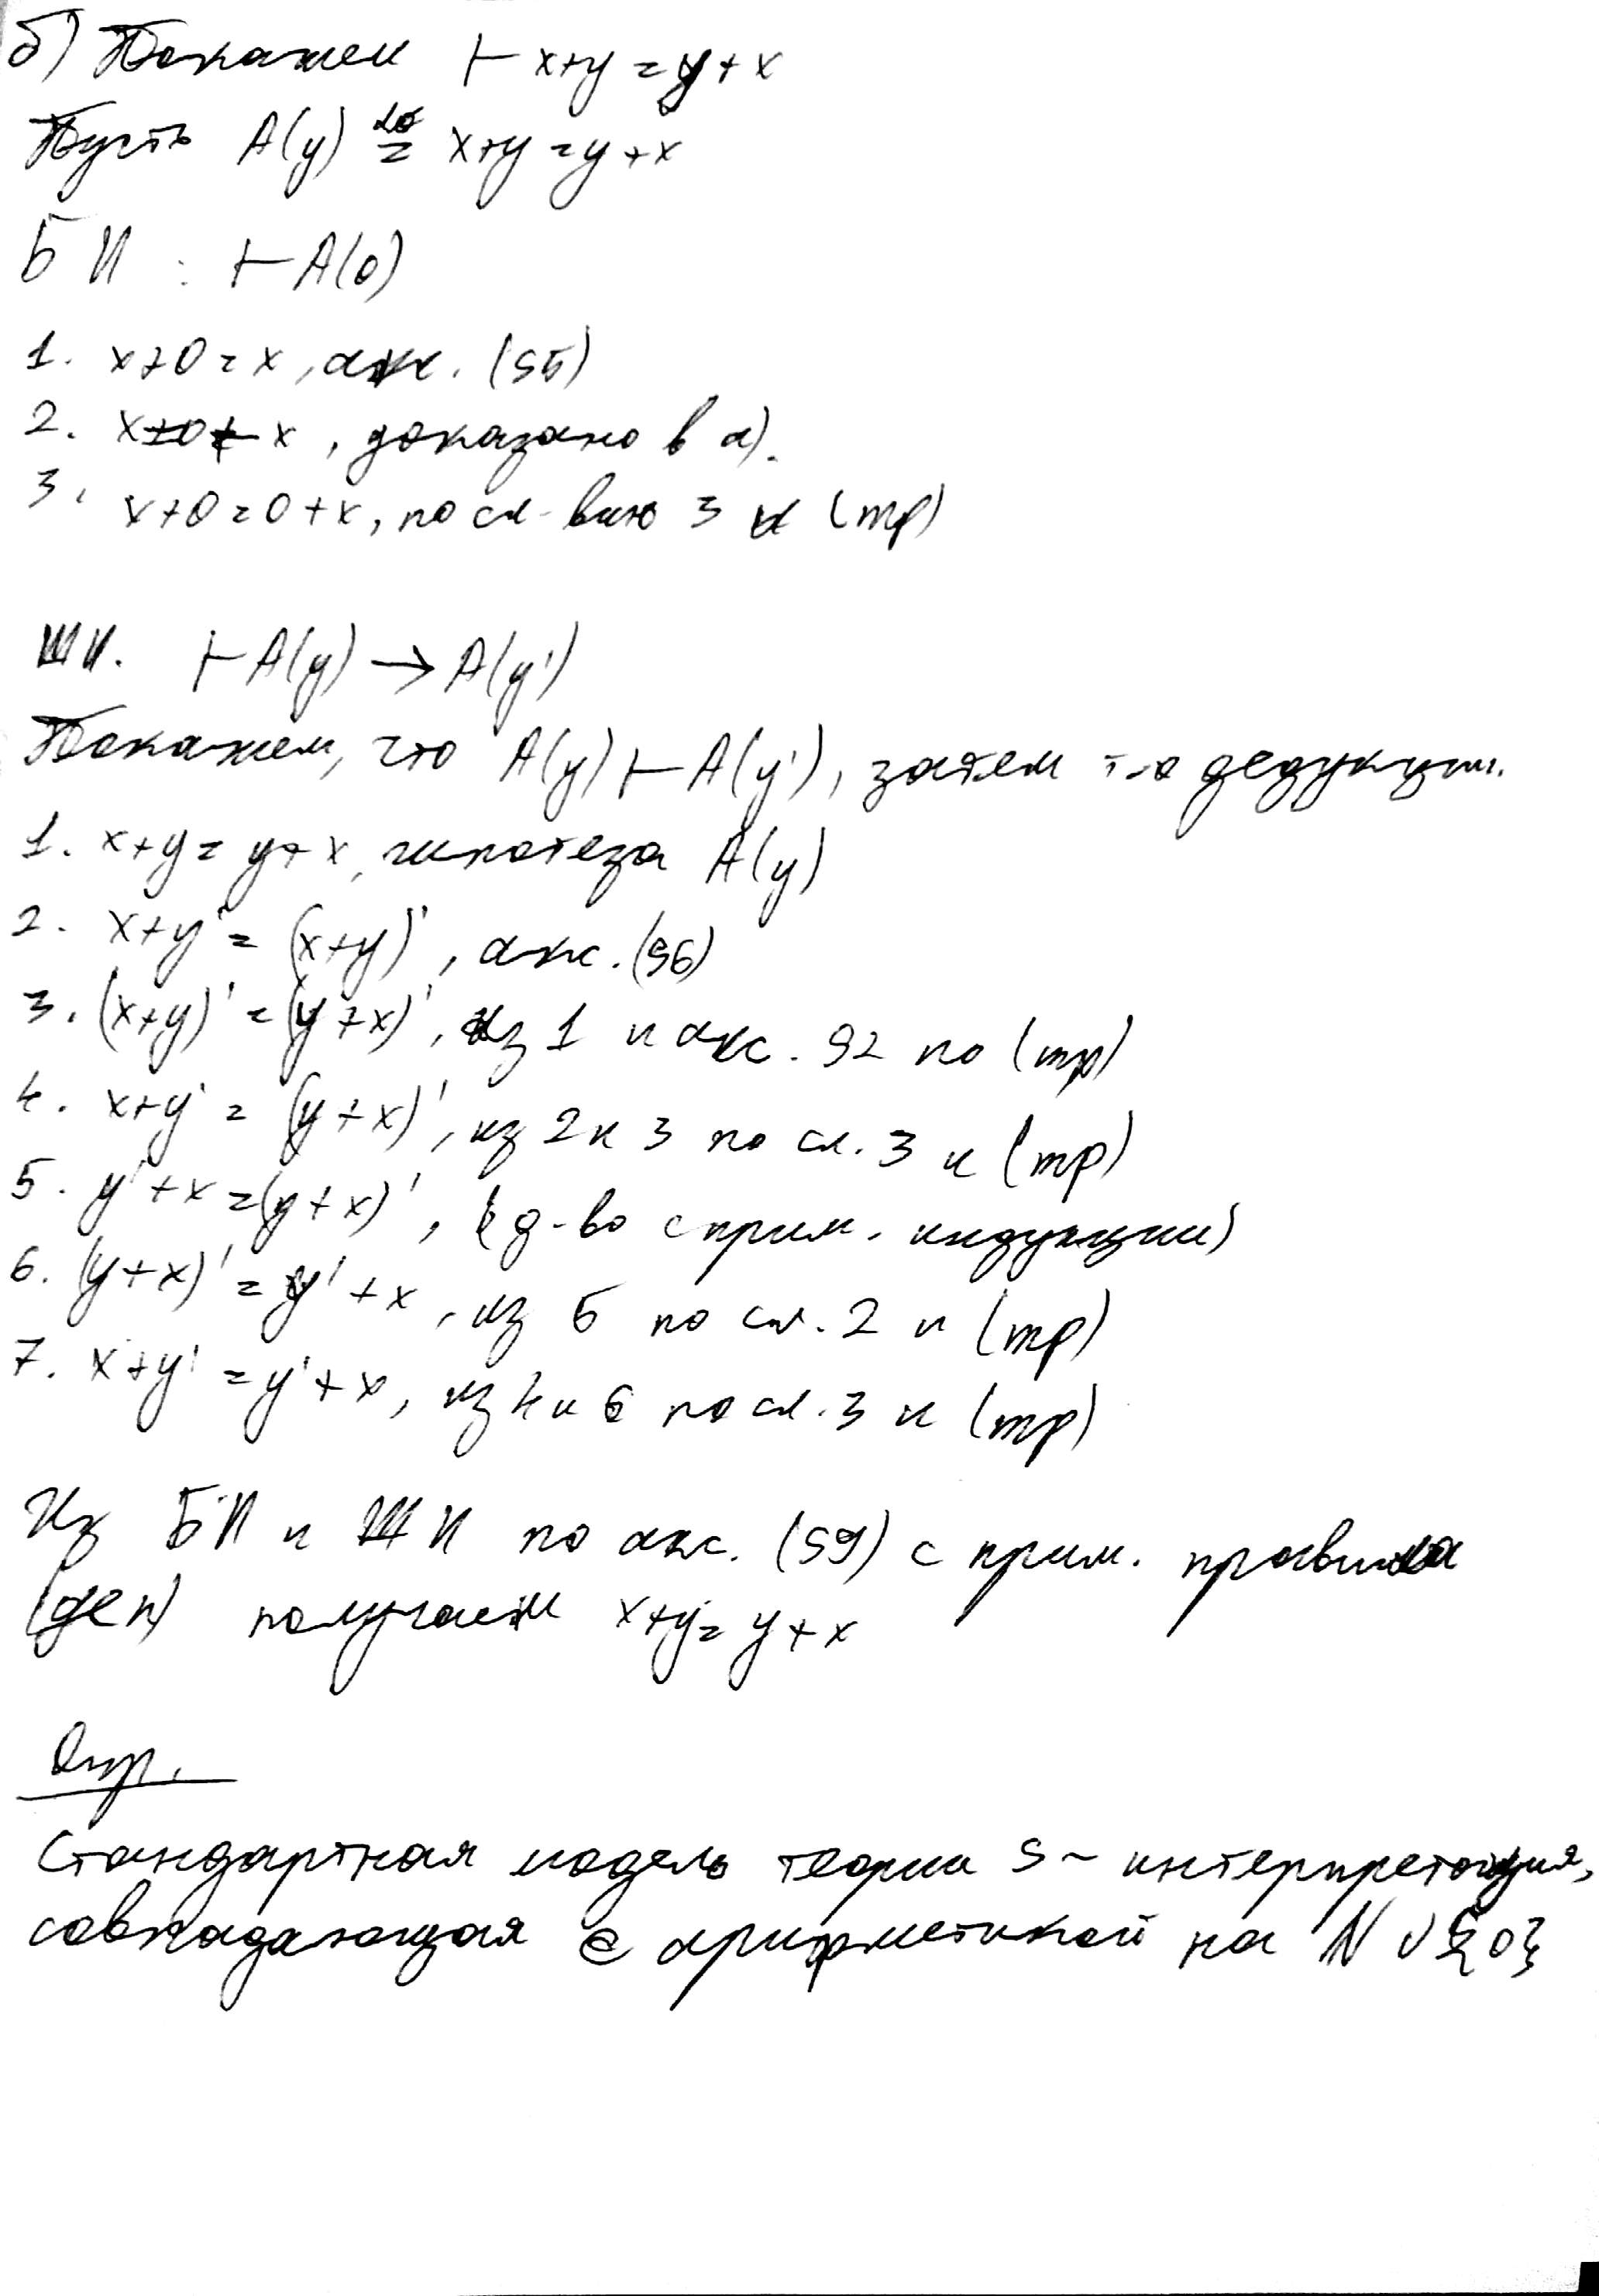 б) Покажем ⊢ x+y = y+x
Пусть A(y) = x+y = y+x
БИ : ⊢ A(0)
1. x+0 = x, акс. (S5)
2. x=0+x, доказано в а).
3. x+0=0+x, по сл-вию 3 и (mp)
ШИ. ⊢ A(y) → A(y')
Покажем, что A(y) ⊢ A(y'), затем т-а дедукции.
1. x+y = y+x, гипотеза A(y)
2. x+y' = (x+y)', акс. (S6)
3. (x+y)' = (y+x)', из 1 и акс. S2 по (mp)
4. x+y' = (y+x)', из 2 и 3 по сл. 3 и (mp)
5. y'+x = (y+x)', (д-во с прим. индукции)
6. (y+x)' = y'+x, из 5 по сл. 2 и (mp)
7. x+y' = y'+x, из 4 и 6 по сл. 3 и (mp)
Из БИ и ШИ по акс. (S9) с прим. правила
(gen) получаем x+y = y+x
Опр.
Стандартная модель теории S - интерпретация,
совпадающая с арифметикой на N ∪ {0}